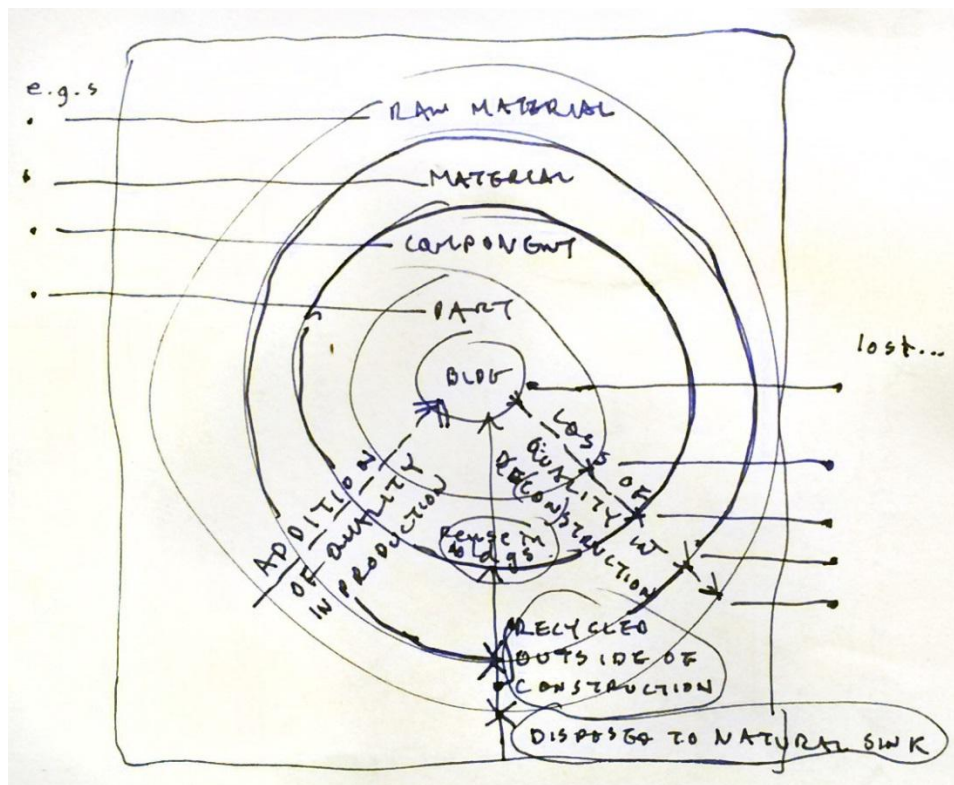 e.g.s
RAW MATERIAL
MATERIAL
COMPONENT
PART
BLDG
lost...
ADDITION
OF QUALITY
IN PRODUCTION
LOSS OF
QUALITY IN
DECONSTRUCTION
Reuse in
bldgs
RECYCLED
OUTSIDE OF
CONSTRUCTION
DISPOSED TO NATURAL SINK